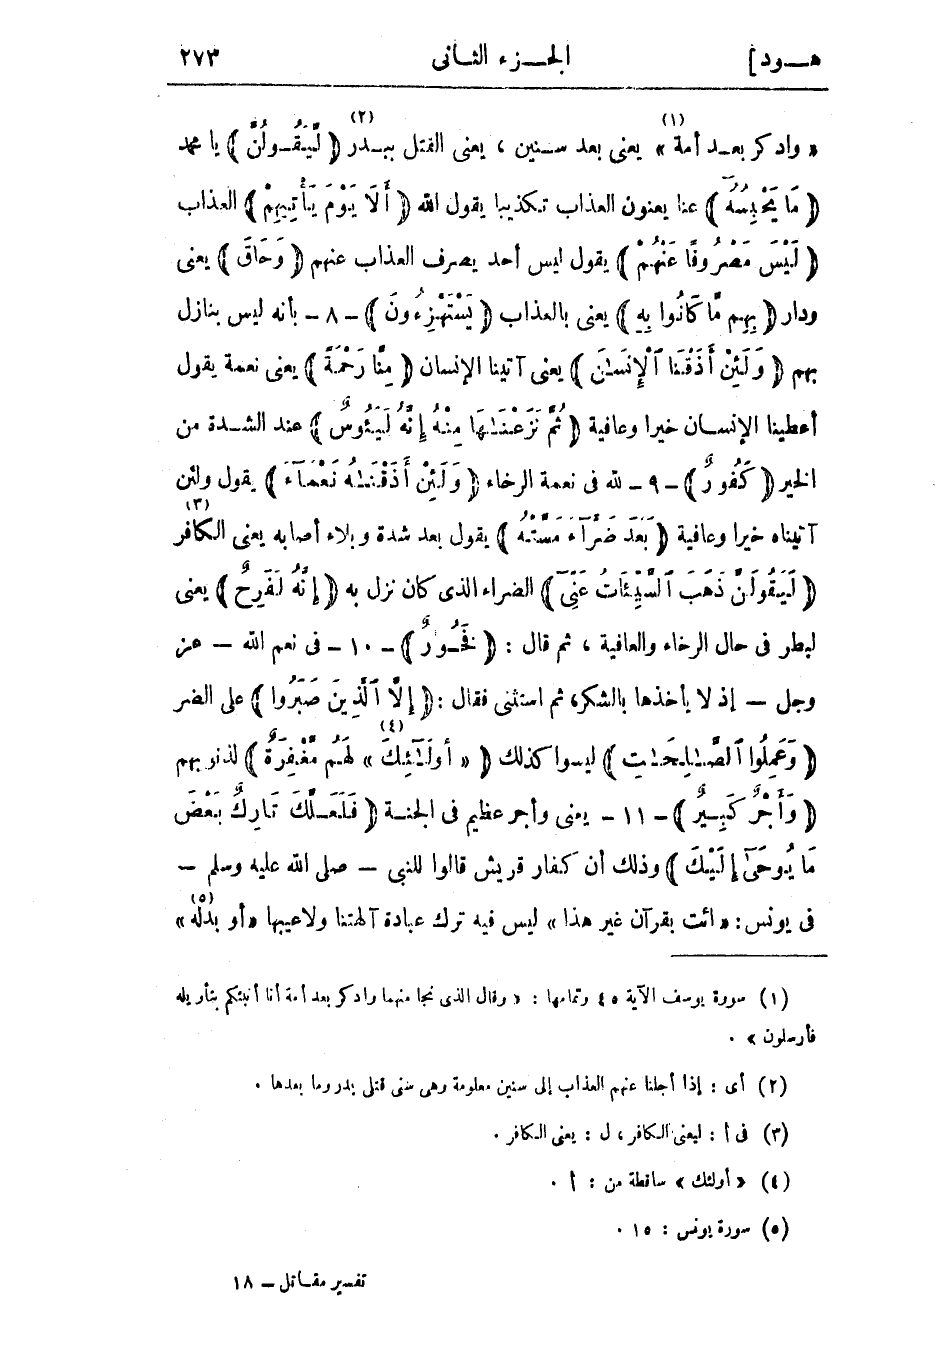 هـود] الجـزء الثـانى ٢٧٣
« وادكر بعـد أمة(١) » يعنى بعد سـنين ، يعنى القتل ببـدر(٢) ﴿ لَّيَقُـولُنَّ ﴾ يا محمد
﴿ مَا يَحْبِسُهُٓ ﴾ عنا يعنون العذاب تكذيبا يقول الله ﴿ أَلَا يَوْمَ يَأْتِيهِمْ ﴾ العذاب
﴿ لَيْسَ مَصْرُوفًا عَنْهُمْ ﴾ يقول ليس أحد يصرف العذاب عنهم ﴿ وَحَاقَ ﴾ يعنى
ودار ﴿ بِهِم مَّا كَانُوا بِهِ ﴾ يعنى بالعذاب ﴿ يَسْتَهْزِءُونَ ﴾ - ٨ - بأنه ليس بنازل
بهم ﴿ وَلَئِنْ أَذَقْنَا ٱلْإِنسَـٰنَ ﴾ يعنى آتينا الإنسان ﴿ مِنَّا رَحْمَةً ﴾ يعنى نعمة يقول
أعطينا الإنسـان خيرا وعافية ﴿ ثُمَّ نَزَعْنَـٰهَا مِنْهُ إِنَّهُ لَيَئُوسٌ ﴾ عند الشـدة من
الخير ﴿ كَفُورٌ ﴾ - ٩ - لله فى نعمة الرخاء ﴿ وَلَئِنْ أَذَقْنَـٰهُ نَعْمَآءَ ﴾ يقول ولئن
آتيناه خيرا وعافية ﴿ بَعْدَ ضَرَّآءَ مَسَّتْهُ ﴾ يقول بعد شدة وبلاء أصابه يعنى الكافر(٣)
﴿ لَيَقُولَنَّ ذَهَبَ ٱلسَّيِّئَاتُ عَنِّىٓ ﴾ الضراء الذى كان نزل به ﴿ إِنَّهُ لَفَرِحٌ ﴾ يعنى
لبطر فى حال الرخاء والعافية ، ثم قال : ﴿ فَخُـورٌ ﴾ - ١٠ - فى نعم الله — عز
وجل — إذ لا يأخذها بالشكر، ثم استثنى فقال : ﴿ إِلَّا ٱلَّذِينَ صَبَرُوا ﴾ على الضر
﴿ وَعَمِلُوا ٱلصَّـٰلِحَـٰتِ ﴾ ليسوا كذلك ﴿ « أُولَـٰٓئِكَ(٤) » لَهُم مَّغْفِرَةٌ ﴾ لذنوبهم
﴿ وَأَجْرٌ كَبِـيرٌ ﴾ - ١١ - يعنى وأجر عظيم فى الجنـة ﴿ فَلَعَـلَّكَ تَارِكٌ بَعْضَ
مَا يُوحَىٰٓ إِلَيْكَ ﴾ وذلك أن كفار قريش قالوا للنبى — صلى الله عليه وسلم —
فى يونس : « ائت بقرآن غير هذا » ليس فيه ترك عبادة آلهتنا ولا عيبها « أو بدله(٥) »
(١) سورة يوسف الآية ٤٥ وتمامها : « وقال الذى نجا منهما وادكر بعد أمة أنا أنبئكم بتأويله
فأرسلون » .
(٢) أى : إذا أجلنا عنهم العذاب إلى سنين معلومة وهى سنى قتلى بدر وما بعدها .
(٣) فى أ : ليعنى الكافر ، ل : يعنى الكافر .
(٤) « أولئك » ساقطة من : أ .
(٥) سورة يونس : ١٥ .
تفسير مقـاتل — ١٨